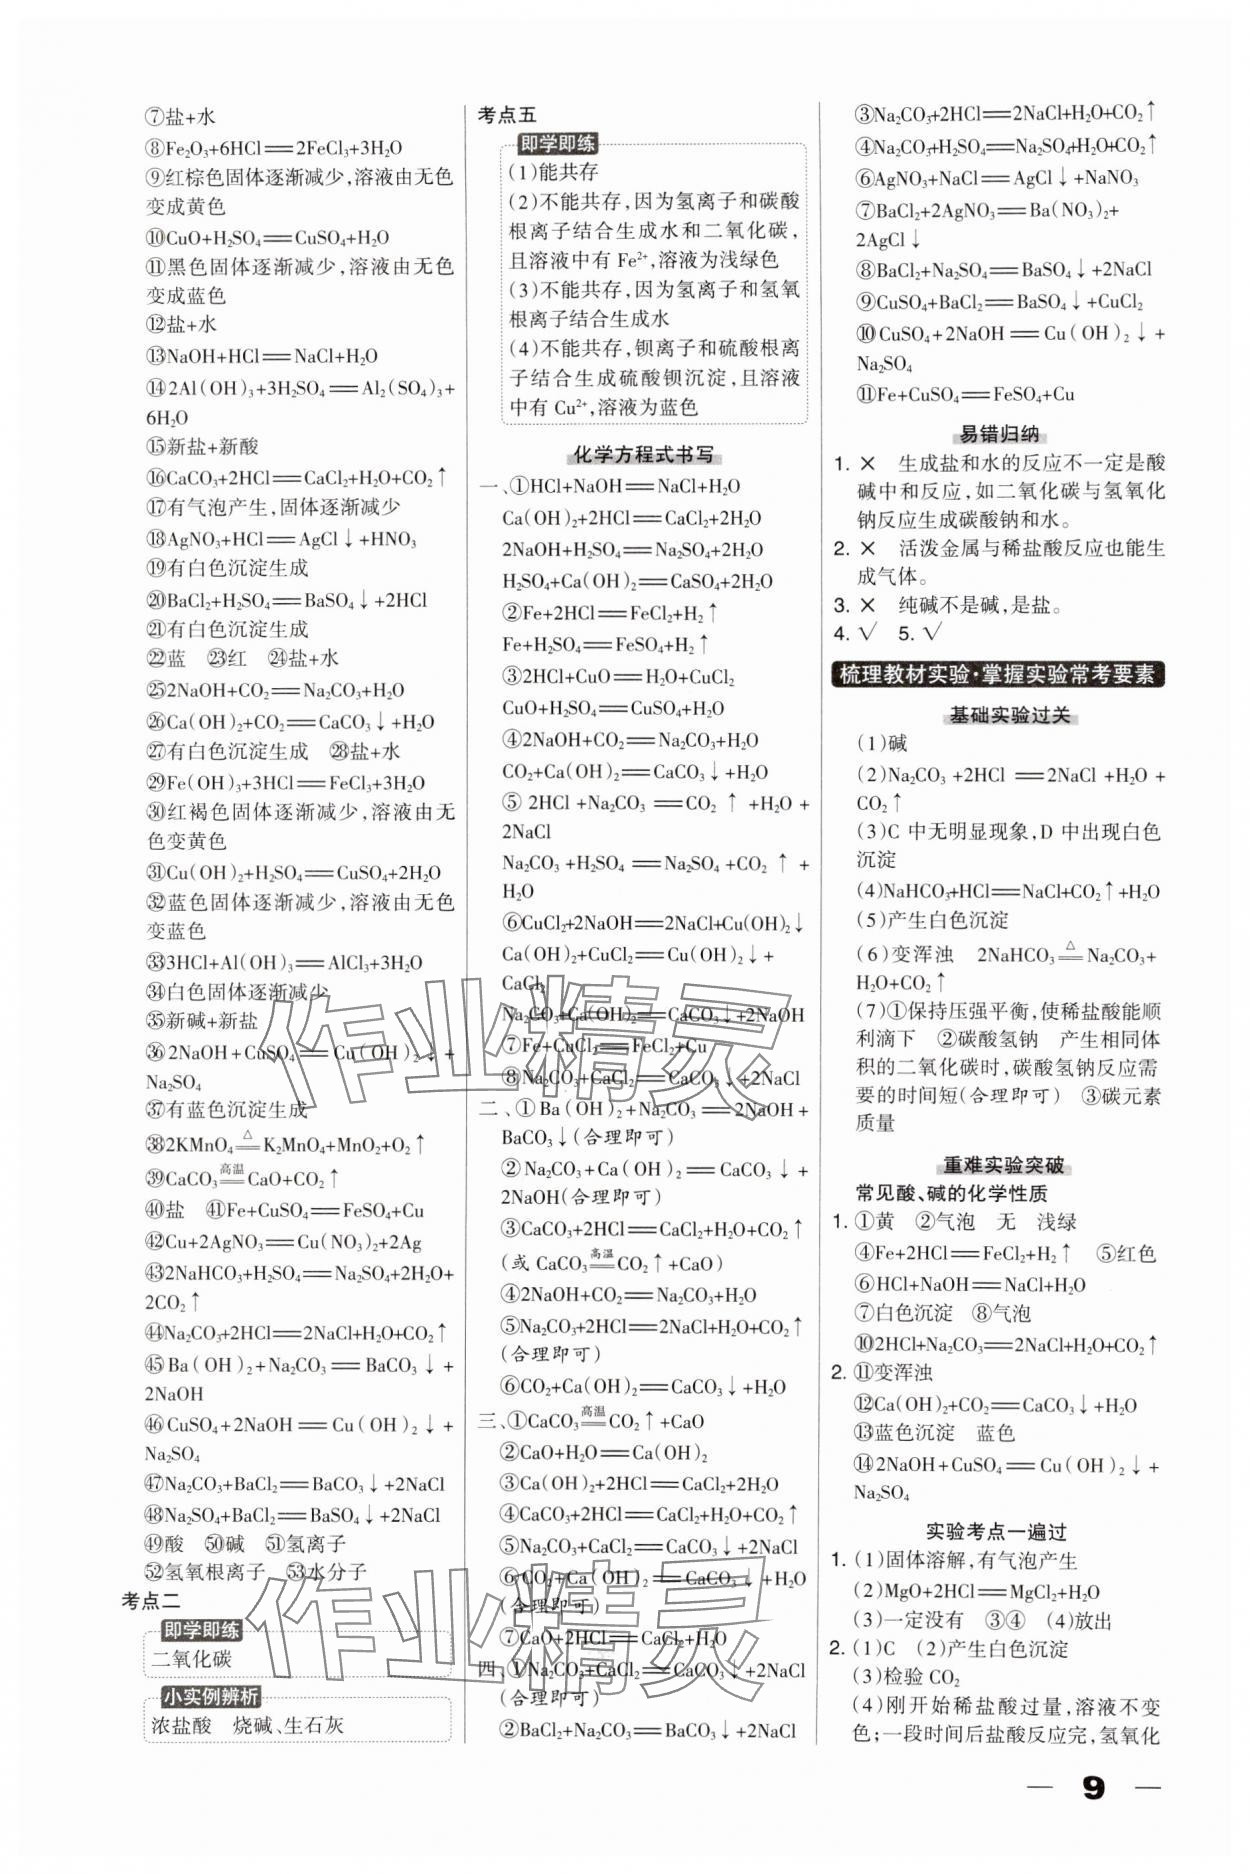 ⑦盐+水
⑧Fe₂O₃+6HCl══2FeCl₃+3H₂O
⑨红棕色固体逐渐减少,溶液由无色
变成黄色
⑩CuO+H₂SO₄══CuSO₄+H₂O
⑪黑色固体逐渐减少,溶液由无色
变成蓝色
⑫盐+水
⑬NaOH+HCl══NaCl+H₂O
⑭2Al(OH)₃+3H₂SO₄══Al₂(SO₄)₃+
6H₂O
⑮新盐+新酸
⑯CaCO₃+2HCl══CaCl₂+H₂O+CO₂↑
⑰有气泡产生,固体逐渐减少
⑱AgNO₃+HCl══AgCl↓+HNO₃
⑲有白色沉淀生成
⑳BaCl₂+H₂SO₄══BaSO₄↓+2HCl
㉑有白色沉淀生成
㉒蓝 ㉓红 ㉔盐+水
㉕2NaOH+CO₂══Na₂CO₃+H₂O
㉖Ca(OH)₂+CO₂══CaCO₃↓+H₂O
㉗有白色沉淀生成 ㉘盐+水
㉙Fe(OH)₃+3HCl══FeCl₃+3H₂O
㉚红褐色固体逐渐减少,溶液由无
色变黄色
㉛Cu(OH)₂+H₂SO₄══CuSO₄+2H₂O
㉜蓝色固体逐渐减少,溶液由无色
变蓝色
㉝3HCl+Al(OH)₃══AlCl₃+3H₂O
㉞白色固体逐渐减少
㉟新碱+新盐
㊱2NaOH+CuSO₄══Cu(OH)₂↓+
Na₂SO₄
㊲有蓝色沉淀生成
㊳2KMnO₄═△═K₂MnO₄+MnO₂+O₂↑
㊴CaCO₃═高温═CaO+CO₂↑
㊵盐 ㊶Fe+CuSO₄══FeSO₄+Cu
㊷Cu+2AgNO₃══Cu(NO₃)₂+2Ag
㊸2NaHCO₃+H₂SO₄══Na₂SO₄+2H₂O+
2CO₂↑
㊹Na₂CO₃+2HCl══2NaCl+H₂O+CO₂↑
㊺Ba(OH)₂+Na₂CO₃══BaCO₃↓+
2NaOH
㊻CuSO₄+2NaOH══Cu(OH)₂↓+
Na₂SO₄
㊼Na₂CO₃+BaCl₂══BaCO₃↓+2NaCl
㊽Na₂SO₄+BaCl₂══BaSO₄↓+2NaCl
㊾酸 ㊿碱 51氢离子
52氢氧根离子 53水分子
考点二
即学即练
二氧化碳
小实例辨析
浓盐酸 烧碱、生石灰
考点五
即学即练
(1)能共存
(2)不能共存,因为氢离子和碳酸
根离子结合生成水和二氧化碳,
且溶液中有 Fe²⁺,溶液为浅绿色
(3)不能共存,因为氢离子和氢氧
根离子结合生成水
(4)不能共存,钡离子和硫酸根离
子结合生成硫酸钡沉淀,且溶液
中有 Cu²⁺,溶液为蓝色
化学方程式书写
一、①HCl+NaOH══NaCl+H₂O
Ca(OH)₂+2HCl══CaCl₂+2H₂O
2NaOH+H₂SO₄══Na₂SO₄+2H₂O
H₂SO₄+Ca(OH)₂══CaSO₄+2H₂O
②Fe+2HCl══FeCl₂+H₂↑
Fe+H₂SO₄══FeSO₄+H₂↑
③2HCl+CuO══H₂O+CuCl₂
CuO+H₂SO₄══CuSO₄+H₂O
④2NaOH+CO₂══Na₂CO₃+H₂O
CO₂+Ca(OH)₂══CaCO₃↓+H₂O
⑤2HCl+Na₂CO₃══CO₂↑+H₂O+
2NaCl
Na₂CO₃+H₂SO₄══Na₂SO₄+CO₂↑+
H₂O
⑥CuCl₂+2NaOH══2NaCl+Cu(OH)₂↓
Ca(OH)₂+CuCl₂══Cu(OH)₂↓+
CaCl₂
Na₂CO₃+Ca(OH)₂══CaCO₃↓+2NaOH
⑦Fe+CuCl₂══FeCl₂+Cu
⑧Na₂CO₃+CaCl₂══CaCO₃↓+2NaCl
二、①Ba(OH)₂+Na₂CO₃══2NaOH+
BaCO₃↓(合理即可)
②Na₂CO₃+Ca(OH)₂══CaCO₃↓+
2NaOH(合理即可)
③CaCO₃+2HCl══CaCl₂+H₂O+CO₂↑
(或 CaCO₃═高温═CO₂↑+CaO)
④2NaOH+CO₂══Na₂CO₃+H₂O
⑤Na₂CO₃+2HCl══2NaCl+H₂O+CO₂↑
(合理即可)
⑥CO₂+Ca(OH)₂══CaCO₃↓+H₂O
三、①CaCO₃═高温═CO₂↑+CaO
②CaO+H₂O══Ca(OH)₂
③Ca(OH)₂+2HCl══CaCl₂+2H₂O
④CaCO₃+2HCl══CaCl₂+H₂O+CO₂↑
⑤Na₂CO₃+CaCl₂══CaCO₃↓+2NaCl
⑥CO₂+Ca(OH)₂══CaCO₃↓+H₂O
(合理即可)
⑦CaO+2HCl══CaCl₂+H₂O
四、①Na₂CO₃+CaCl₂══CaCO₃↓+2NaCl
(合理即可)
②BaCl₂+Na₂CO₃══BaCO₃↓+2NaCl
③Na₂CO₃+2HCl══2NaCl+H₂O+CO₂↑
④Na₂CO₃+H₂SO₄══Na₂SO₄+H₂O+CO₂↑
⑥AgNO₃+NaCl══AgCl↓+NaNO₃
⑦BaCl₂+2AgNO₃══Ba(NO₃)₂+
2AgCl↓
⑧BaCl₂+Na₂SO₄══BaSO₄↓+2NaCl
⑨CuSO₄+BaCl₂══BaSO₄↓+CuCl₂
⑩CuSO₄+2NaOH══Cu(OH)₂↓+
Na₂SO₄
⑪Fe+CuSO₄══FeSO₄+Cu
易错归纳
1. × 生成盐和水的反应不一定是酸
碱中和反应,如二氧化碳与氢氧化
钠反应生成碳酸钠和水。
2. × 活泼金属与稀盐酸反应也能生
成气体。
3. × 纯碱不是碱,是盐。
4. √ 5. √
梳理教材实验·掌握实验常考要素
基础实验过关
(1)碱
(2)Na₂CO₃+2HCl══2NaCl+H₂O+
CO₂↑
(3)C 中无明显现象,D 中出现白色
沉淀
(4)NaHCO₃+HCl══NaCl+CO₂↑+H₂O
(5)产生白色沉淀
(6)变浑浊 2NaHCO₃═△═Na₂CO₃+
H₂O+CO₂↑
(7)①保持压强平衡,使稀盐酸能顺
利滴下 ②碳酸氢钠 产生相同体
积的二氧化碳时,碳酸氢钠反应需
要的时间短(合理即可) ③碳元素
质量
重难实验突破
常见酸、碱的化学性质
1. ①黄 ②气泡 无 浅绿
④Fe+2HCl══FeCl₂+H₂↑ ⑤红色
⑥HCl+NaOH══NaCl+H₂O
⑦白色沉淀 ⑧气泡
⑩2HCl+Na₂CO₃══2NaCl+H₂O+CO₂↑
2. ⑪变浑浊
⑫Ca(OH)₂+CO₂══CaCO₃↓+H₂O
⑬蓝色沉淀 蓝色
⑭2NaOH+CuSO₄══Cu(OH)₂↓+
Na₂SO₄
实验考点一遍过
1. (1)固体溶解,有气泡产生
(2)MgO+2HCl══MgCl₂+H₂O
(3)一定没有 ③④ (4)放出
2. (1)C (2)产生白色沉淀
(3)检验 CO₂
(4)刚开始稀盐酸过量,溶液不变
色;一段时间后盐酸反应完,氢氧化
— 9 —
作业精灵
作业精灵